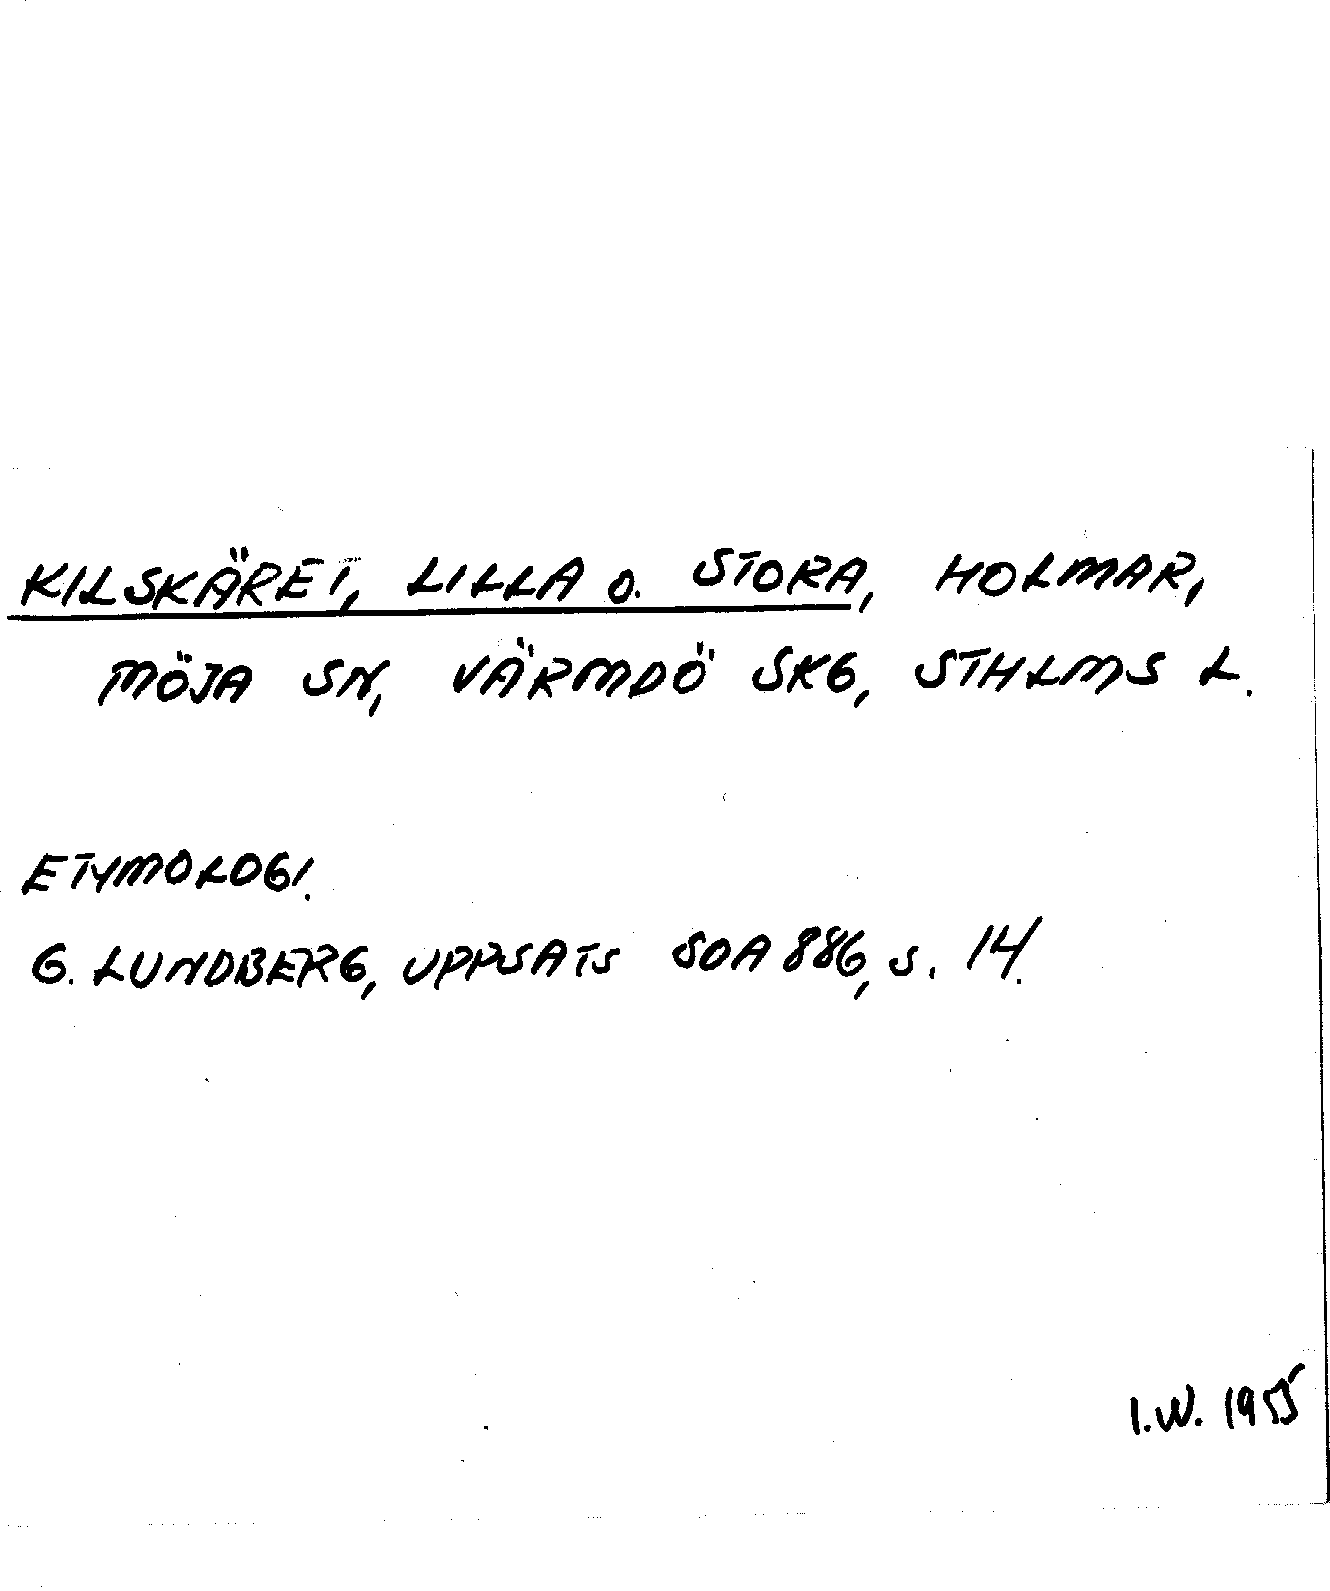 KILSKÄRET, LILLA o. STORA, HOLMAR,
MÖJA SN, VÄRMDÖ SKG, STHLMS L.
ETYMOLOGI.
G. LUNDBERG, UPPSATS SOA 886, s. 14.
I.W. 1955